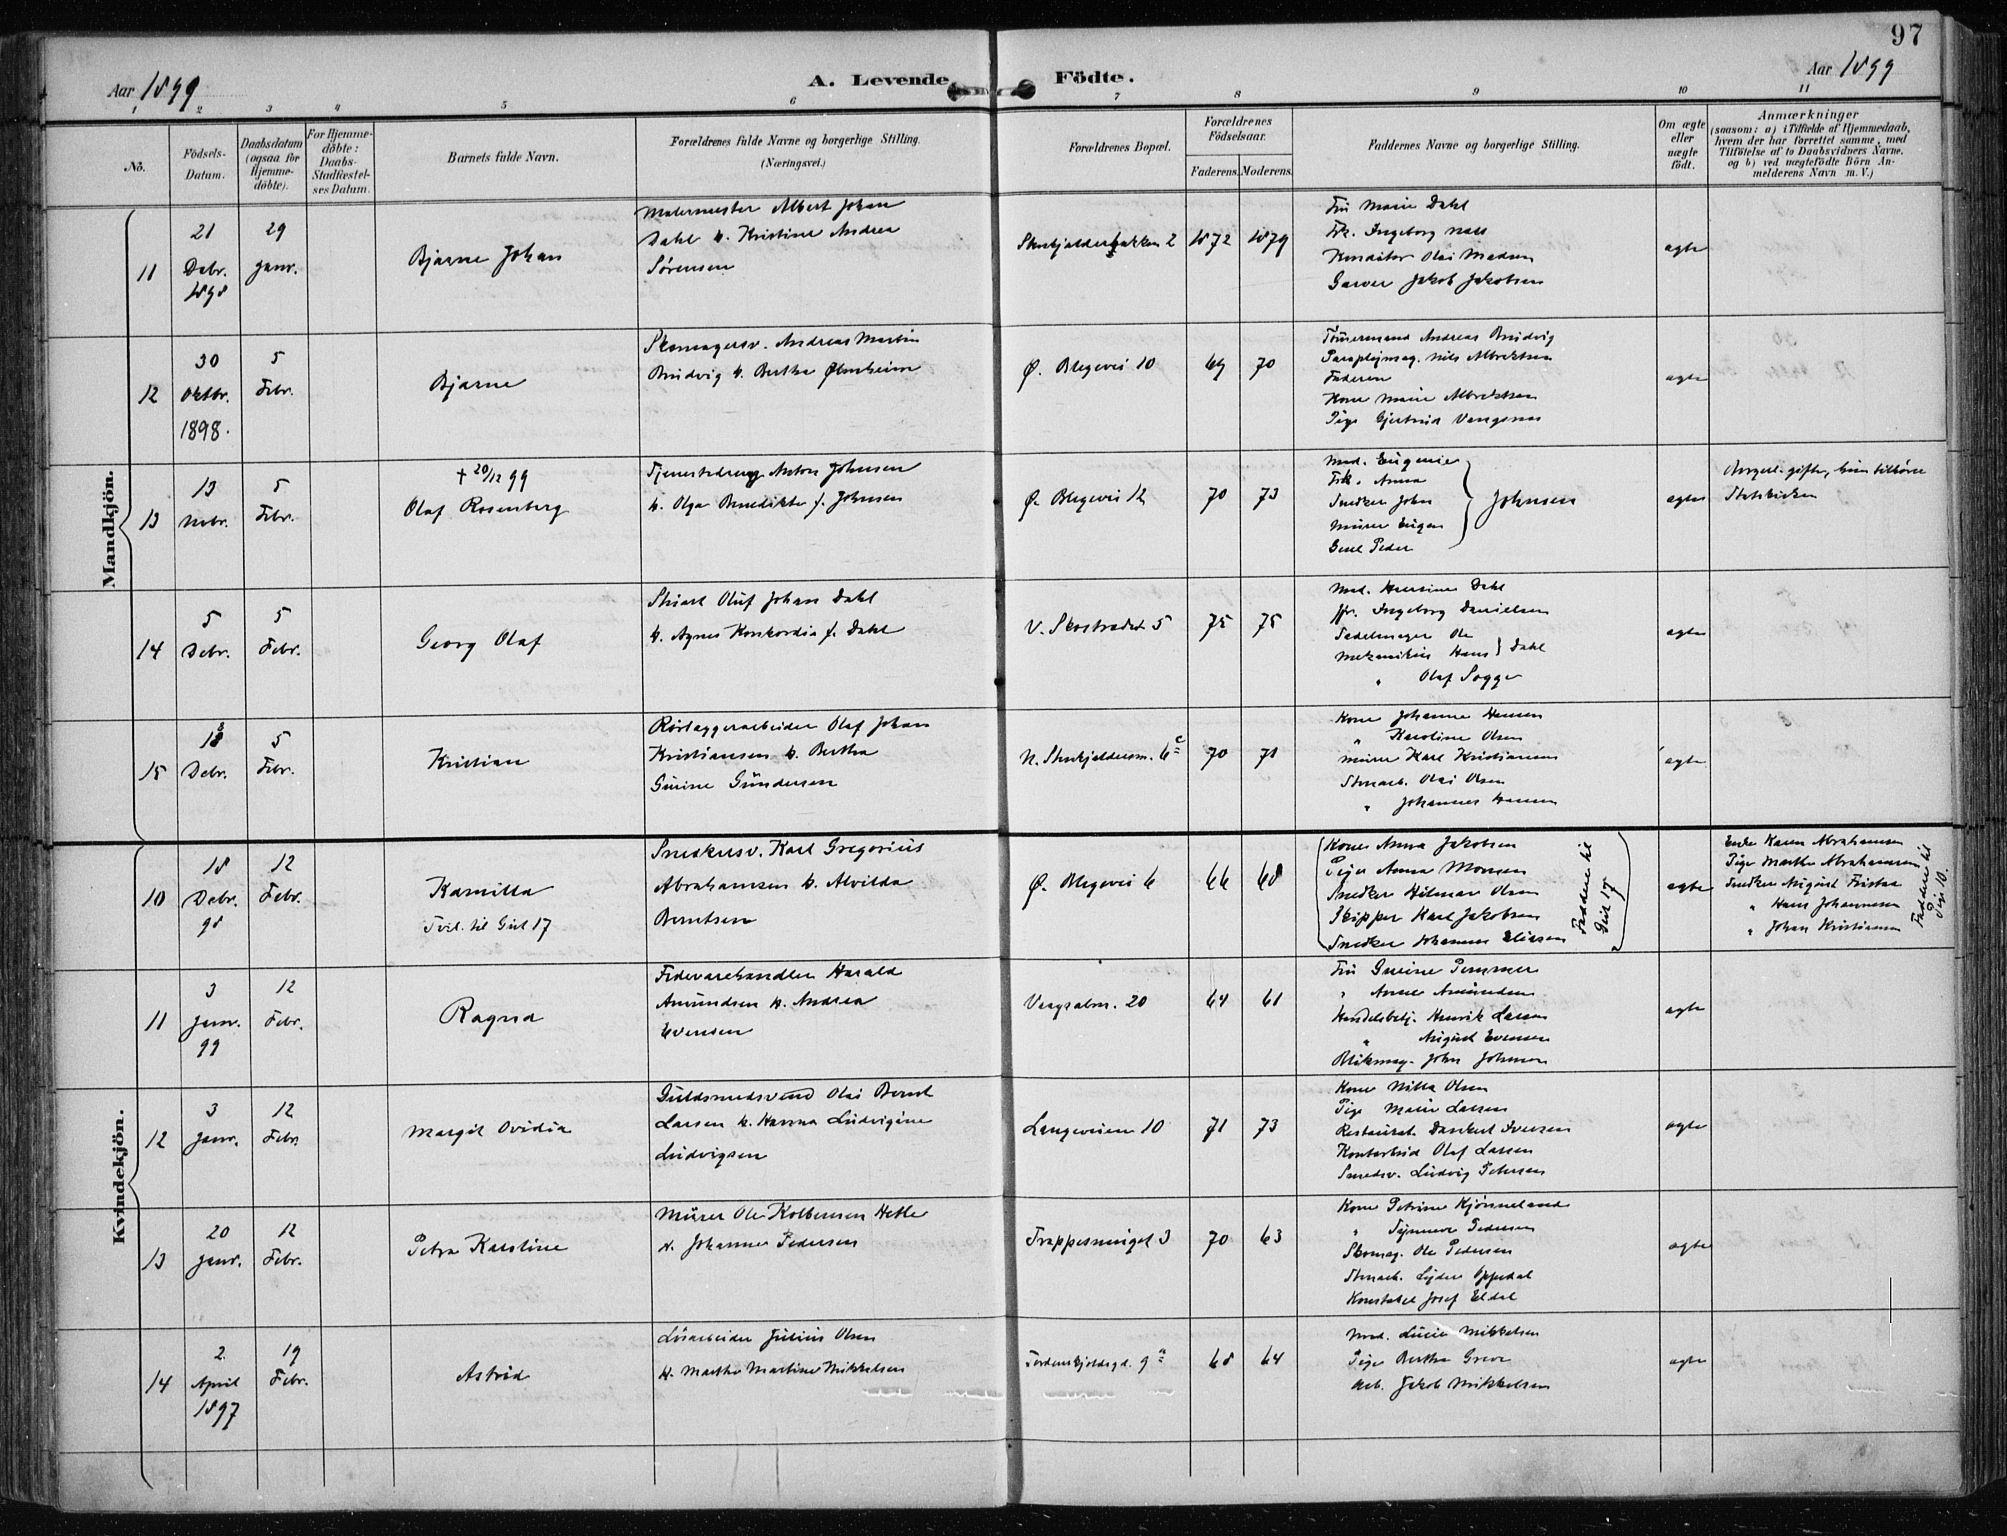 97
Aar 1899
A. Levende Födte.
Aar 1899
1 2 3 4 5 6 7 8 9 10 11
No.
Födsels-Datum.
Daabsdatum (ogsaa for Hjemme-döbte).
For Hjemme-döbte: Daabs-Stadfæstel-ses Datum.
Barnets fulde Navn.
Forældrenes fulde Navne og borgerlige Stilling.
(Næringsvei.)
Forældrenes Bopæl.
Forældrenes Födselsaar.
Faderens. Moderens.
Faddernes Navne og borgerlige Stilling.
Om ægte eller uægte födt.
Anmærkninger
(saasom: a) i Tilfælde af Hjemmedaab,
hvem der har forrettet samme, med
Tilföielse af to Daabsvidners Navne,
og b) ved uægtefödte Börn An-
melderens Navn m. V.)
Mandkjön.
11
21 Debr. 1898
29 Janr.
Bjarne Johan
Malermester Albert Johan
Dahl h. Kristine Andrea
Sørensen
Skivebakken 2
1872 1879
Fru Marie Dahl
Frk. Ingeborg
Konditor Olai Madsen
Garver Jakob Jakobsen
ægte
12
30 Oktbr. 1898.
5 Febr.
Bjarne
Skomagersv. Andreas Martin
Brudvig h. Bertha Ølmheim
Ø. Blegevei 10
69 70
Tømmermand Andreas Brudvig
Paraplymag. Nils Albrektsen
Faderen
Kone Marie Albrektsen
Pige Gjertrud Vangsnes
ægte
13
13 Novbr.
5 Febr.
+ 20/12 99
Olaf Rosenberg
Tjenestedreng Anton Johnsen
h. Olga Benedikte f. Johnsen
Ø. Blegevei 12
70 73
Mad. Eugenie
Frk. Anna
Snedker John
Murer Eugen
Peder
Johnsen
ægte
Borgerl. gifte, hun tilhører
Statskirken
14
5 Debr.
5 Febr.
Georg Olaf
Stuert Oluf Johan Dahl
h. Agnes Konkordia f. Dahl
V. Skostrædet 5
75 75
Mad. Hansine Dahl
Jfr. Ingeborg Danielsen
Sadelmager Ole
Mekanikus Hans } Dahl
" Olaf Sogge
ægte
15
18 Debr.
5 Febr.
Kristian
Rørlæggerarbeider Olaf Johan
Kristiansen h. Bertha
Gurine Gundersen
70 71
Kone Johanne Hansen
" Karoline Olsen
Murer Karl Kristiansen
Stenarb. Olai Olsen
" Johannes Hansen
ægte
Kvindekjön.
10
18 Debr. 98
12 Febr.
Kamilla
Tvil. til Gut 17
Snedkersv. Karl Gregorius
Abrahamsen h. Alvilda
Berntsen
Ø. Blegevei 6
66 68
Kone Anna Jakobsen
Pige Anna Monsen
Snedker Hilmar Olsen
Skipper Karl Jakobsen
Snedker Johannes Eliasen
Faddere til Gut 17
ægte
Enke Karen Abrahamsen
Pige Marthe Abrahamsen
Snedker August Fristad
" Hans Johannesen
" Johan Kristiansen
Faddere til Pige 10.
11
3 Janr. 99
12 Febr.
Ragna
Fedevarehandler Harald
Amundsen h. Andrea
Evensen
Vaagsalm. 20
64 61
Fru Gurine Pommer
" Anne Amundsen
Handelsbetj. Henrik Larsen
" August Evensen
Blikmag. John Johnsen
ægte
12
3 Janr.
12 Febr.
Margit Ovidia
Guldsmedsvend Olai Bernt
Larsen h. Hanna Ludvigine
Ludvigsen
Langeveien 10
71 73
Kone Milla Olsen
Pige Marie Larsen
Restaurat. Dankert Iversen
Kontorbud Olaf Larsen
Smedsv. Ludvig Petersen
ægte
13
20 Janr.
12 Febr.
Petra Karstine
Murer Ole Kolbensen Hetle
h. Johanne Pedersen
Trappesmuget 3
70 63
Kone Petrine Kjønneland
" Synneve Pedersen
Skomag. Ole Pedersen
Stenarb. Lyder Oppedal
Konstabel Josef Eldal
ægte
14
2. April 1897
19 Febr.
Astrid
Løsarbeider Julius Olsen
h. Marthe Martine Mikkelsen
Tordenskjoldsgd. 9a
68 64
Mad. Lucie Mikkelsen
Pige Bertha Greve
Arb. Jakob Mikkelsen
ægte